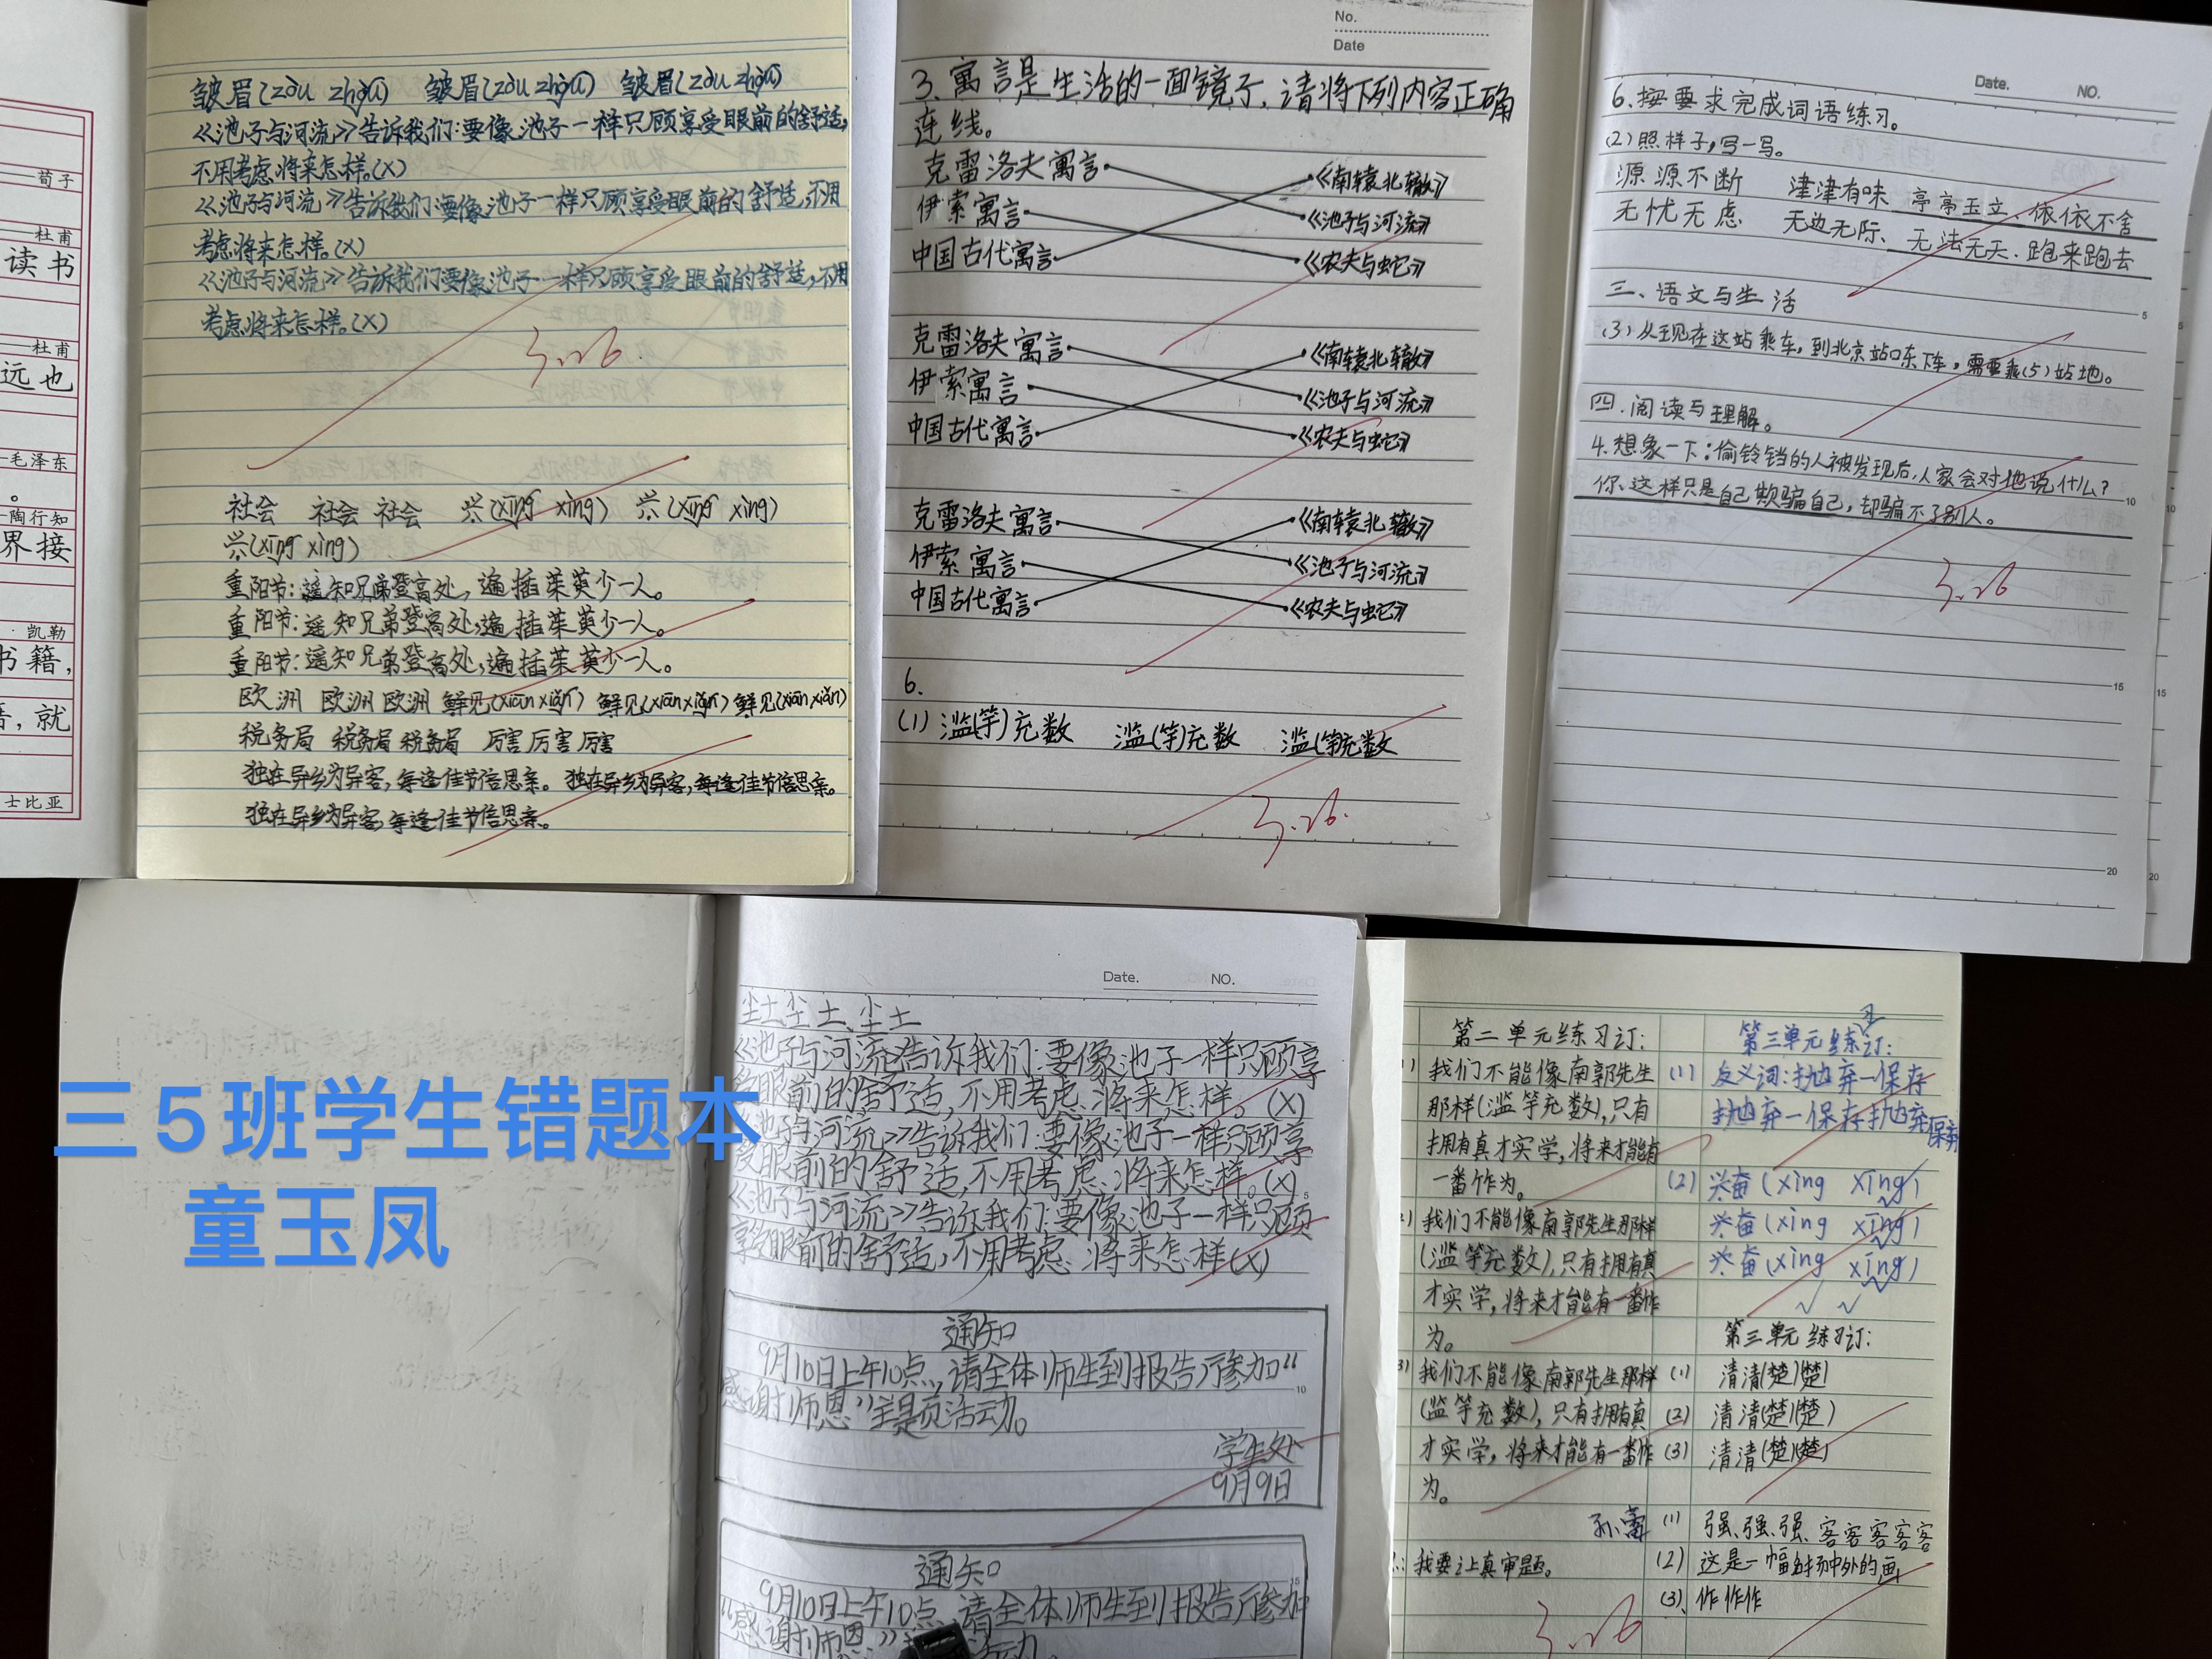 荀子
杜甫
读书
杜甫
远也
毛泽东
。
陶行知
界接
凯勒
书籍，
就
士比亚
皱眉(zòu zhòu) 皱眉(zòu zhòu) 皱眉(zòu zhòu)
《池子与河流》告诉我们:要像池子一样只顾享受眼前的舒适,
不用考虑将来怎样。(X)
《池子与河流》告诉我们:要像池子一样只顾享受眼前的舒适,不用
考虑将来怎样。(X)
《池子与河流》告诉我们要像池子一样只顾享受眼前的舒适,不用
考虑将来怎样。(X)
3.26.
社会 社会 社会 兴(xīng xìng) 兴(xīng xìng)
兴(xīng xìng)
重阳节:遥知兄弟登高处,遍插茱萸少一人。
重阳节:遥知兄弟登高处,遍插茱萸少一人。
重阳节:遥知兄弟登高处,遍插茱萸少一人。
欧洲 欧洲 欧洲 鲜见(xiān xiǎn) 鲜见(xiān xiǎn) 鲜见(xiān xiǎn)
税务局 税务局 税务局 厉害 厉害 厉害
独在异乡为异客,每逢佳节倍思亲。 独在异乡为异客,每逢佳节倍思亲。
独在异乡为异客,每逢佳节倍思亲。
No.
Date
3.寓言是生活的一面镜子,请将下列内容正确
连线。
克雷洛夫寓言 《南辕北辙》
伊索寓言 《池子与河流》
中国古代寓言 《农夫与蛇》
克雷洛夫寓言 《南辕北辙》
伊索寓言 《池子与河流》
中国古代寓言 《农夫与蛇》
克雷洛夫寓言 《南辕北辙》
伊索寓言 《池子与河流》
中国古代寓言 《农夫与蛇》
6.
(1)滥(竽)充数 滥(竽)充数 滥(竽)充数
3.26.
Date. NO.
6.按要求完成词语练习。
(2)照样子,写一写。
源源不断 津津有味 亭亭玉立、依依不舍
无忧无虑 无边无际、无法无天、跑来跑去
三、语文与生活
5
(3)从现在这站乘车,到北京站口东下车,需要乘(5)站地。
四.阅读与理解。
4.想象一下:偷铃铛的人被发现后,人家会对他说什么?
10
你这样只是自己欺骗自己,却骗不了别人。
3.26
15
15
20
20
三5班学生错题本
童玉凤
Date. NO.
尘土、尘土、尘土
《池子与河流》告诉我们:要像池子一样只顾享
受眼前的舒适,不用考虑将来怎样。(X)
《池子与河流》告诉我们:要像池子一样只顾享
受眼前的舒适,不用考虑将来怎样。(X)
《池子与河流》告诉我们:要像池子一样只顾
享受眼前的舒适,不用考虑将来怎样(X)
通知
9月10日上午10点,请全体师生到报告厅参加“
感谢师恩”主题活动。
10
学生处
9月9日
通知
9月10日上午10点,请全体师生到报告厅参加
15
“感谢师恩”
第二单元练习订:
我们不能像南郭先生
那样(滥竽充数),只有
拥有真才实学,将来才能有
一番作为。
我们不能像南郭先生那样
(滥竽充数),只有拥有真
才实学,将来才能有一番作
为。
我们不能像南郭先生那样
(滥竽充数),只有拥有真
才实学,将来才能有一番作
为。
我要认真审题。
3.26
第三单元练订:
(1) 反义词:抛弃一保存
抛弃一保存 抛弃保存
(2) 兴奋(xìng xīng)
兴奋(xìng xīng)
兴奋(xìng xīng)
第三单元练习订:
(1) 清清(楚)(楚)
(2) 清清(楚)(楚)
(3) 清清(楚)(楚)
(1) 强、强、强、客客客客客
(2) 这是一幅
(3)、作作作